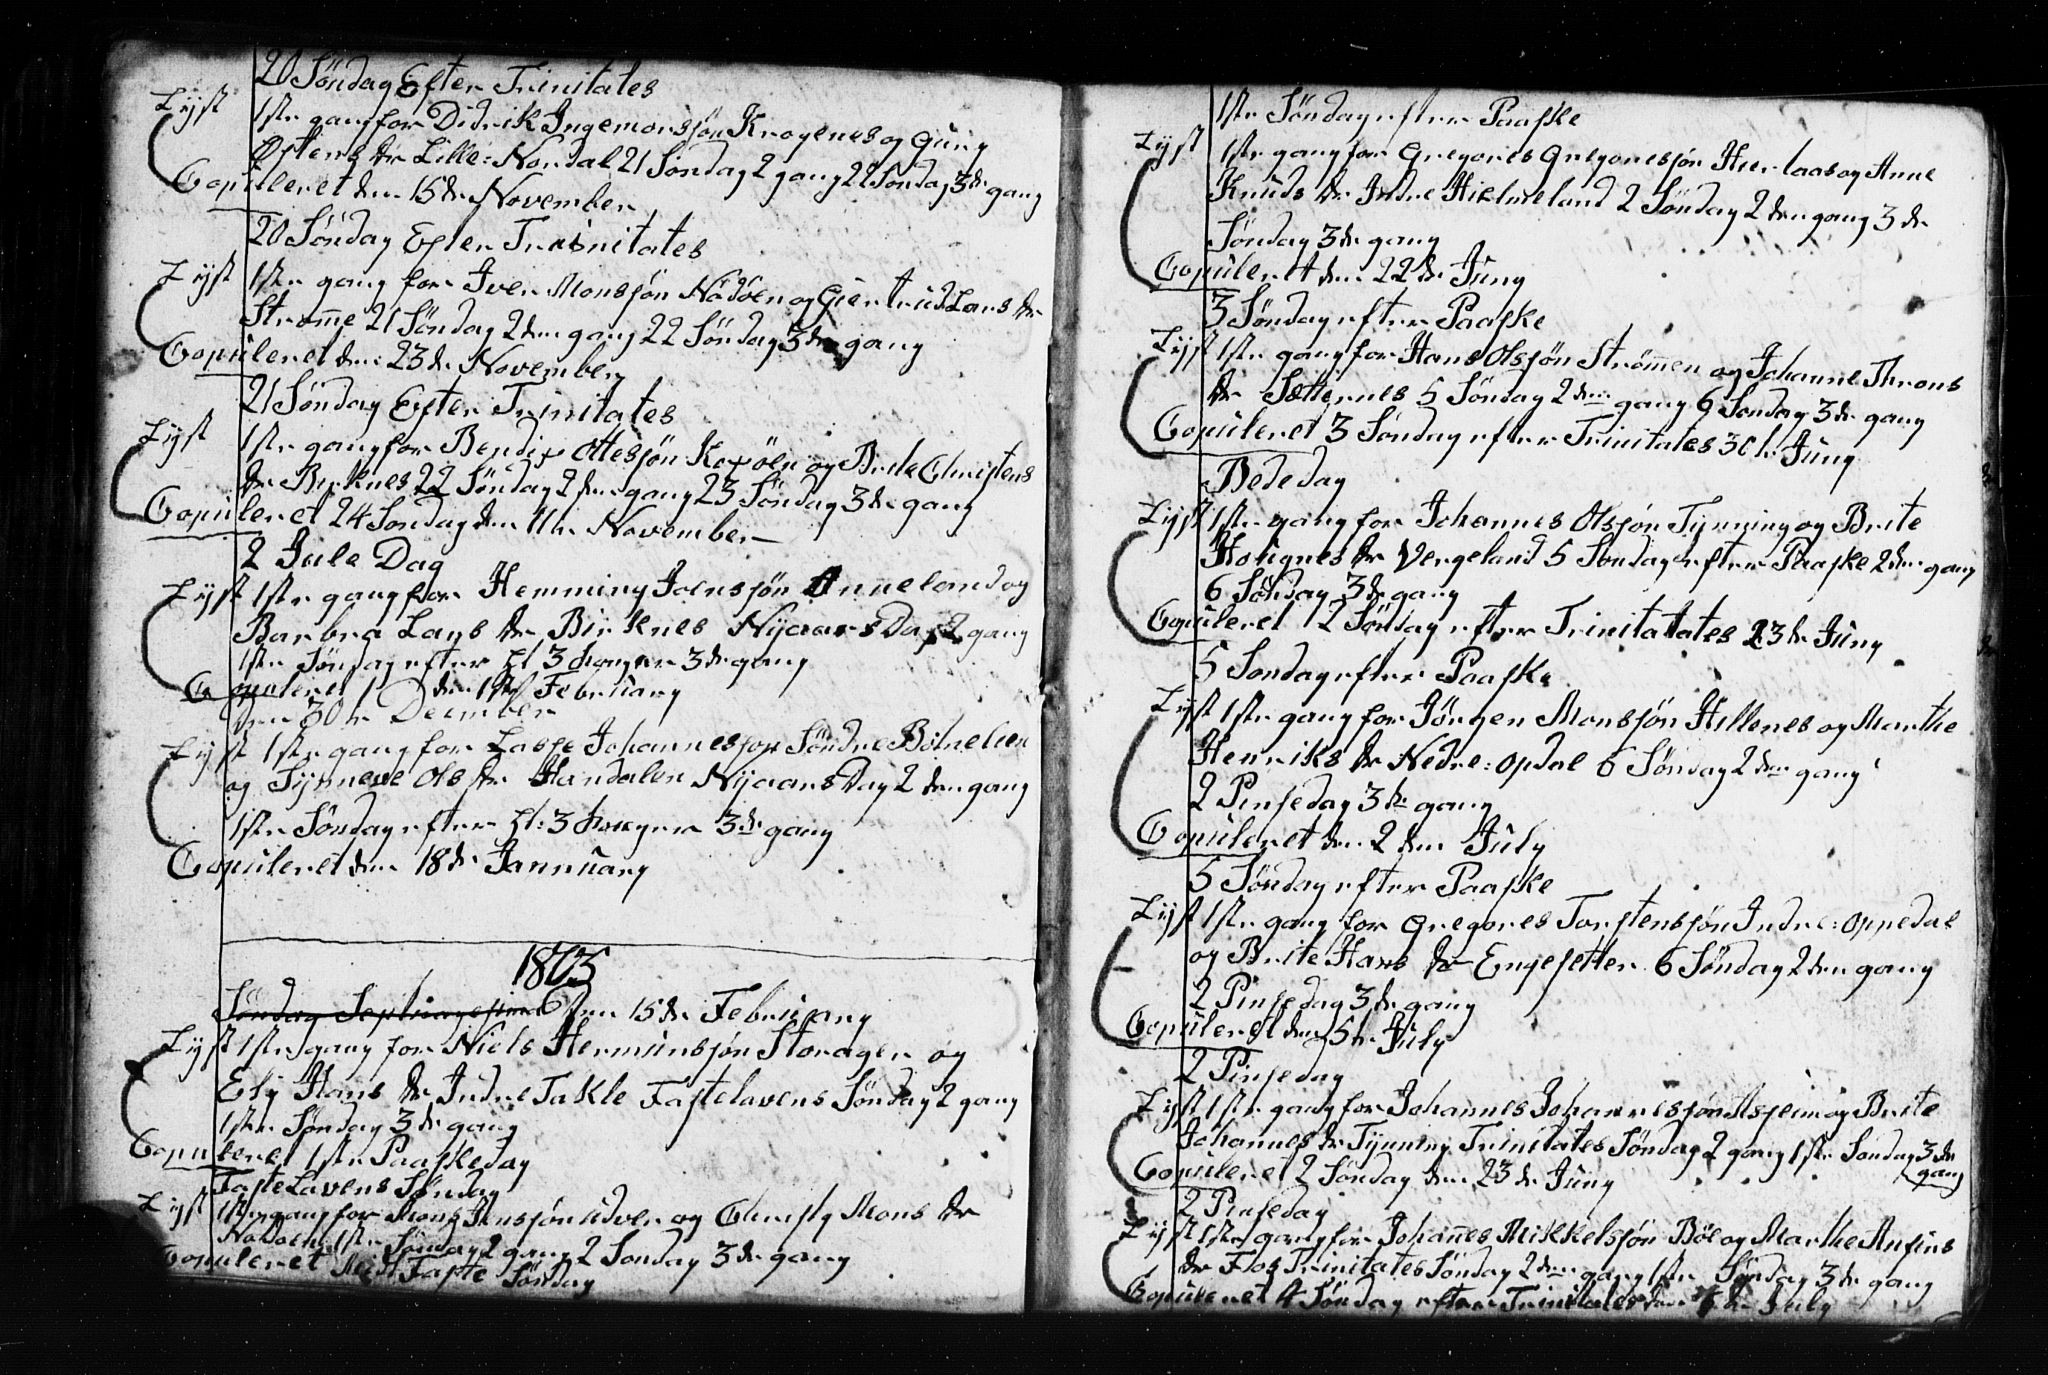 20 Söndag Efter Trinitates
Lyst 1ste gang for Didrik Ingemorsjön Krogenes og Guny
Ostens dr Lille: Nordal 21 Söndag 2 gang 22 Söndag 3de gang
Copuleret den 15de November
20 Söndag Efter Trinitates
Lyst 1ste gang for Iver Monsjön Nödöen og Giertrud Lars dr
Strøme 21 Söndag 2den gang 22 Söndag 3de gang
Copuleret den: 23de November
21 Söndag Efter Trinitates
Lyst 1ste gang for Bendix Ottesjön Kaxöen og Brite Christens
dr Birknes 22 Söndag 2den gang 23 Söndag 3de gang
Copuleret 24 Söndag den 11te November
2 Jule Dag
Lyst 1ste gang for Hemming Joensjön Anneland og
Barbra Lars dr Birknes Nyaars Dag 2 gang
1ste Söndag efter hl 3 konger 3de gang
Copuleret den 1ste February
den 30te December
Lyst 1ste gang for Lasse Johannessjön Söndre Bölnelien
og Synneve Ols dr Handalen Nyaars Dag 2den gang
1ste Söndag efter hl: 3 konger 3de gang
Copuleret den 18de Jannuary
1803
Söndag Septuagesima den 15de February
Lyst 1ste gang for Niels Hermunsjön Storager og
Ely Hans dr Indre Takle Fastelavens Söndag 2 gang
1ste Söndag 3de gang
Copuleret 1ste Paaskedag
FasteLavens Söndag
Lyst 1ste gang for Mons Jensjön Udver og Christy Mons dr
1ste Söndag 2 gang 2 Söndag 3de gang
Copuleret Mid Faste Söndag
1ste Söndag efter Paaske
Lyst 1ste gang for Gregores Gregoresjön Hierlaas og Anne
Knuds dr Indre Hielmeland 2 Söndag 2den gang 3de
Söndag 3de gang
Copuleret den 22de Juny
3 Söndag efter Paaske
Lyst 1ste gang for Hans Olsjön Strömen og Johanne Throns
dr Sætternes 5 Söndag 2den gang 6 Söndag 3de gang
Copuleret 3 Söndag efter Trinitates 30te Juny
Bededag
Lyst 1ste gang for Johannes Olsjön Tynning og Brite
Holugnes dr Vergeland 5 Söndag efter Paaske 2den gang
6 Söndag 3de gang
Copuleret 2 Söndag efter Trinitatates 23de Juny
5 Söndag efter Paaske
Lyst 1ste gang for Jörgen Monsjön Hillenes og Marthe
Henriks dr Nedre: Opdal 6 Söndag 2den gang
2 Pinsedag 3de gang
Copuleret den 2den July
5 Söndag efter Paaske
Lyst 1ste gang for Gregores Torstensjön Indre: Oppedal
og Brite Hans dr Engesetter 6 Söndag 2den gang
2 Pinsedag 3de gang
Copuleret den 5te July
2 Pinsedag
Lyst 1ste gang for Johannes Johannesjön Aspeim og Brite
Johannes dr Tynning Trinitates Söndag 2 gang 1ste Söndag 3de gang
Copuleret 2 Söndag den 23de Juny
2 Pinsedag
Lyst 1ste gang for Johanes Mikkelsjön Böe og Marthe Anfins
dr Flos Trinitates Söndag 2den gang 1ste Söndag 3de gang
Copuleret 4 Söndag efter Trinitates den July